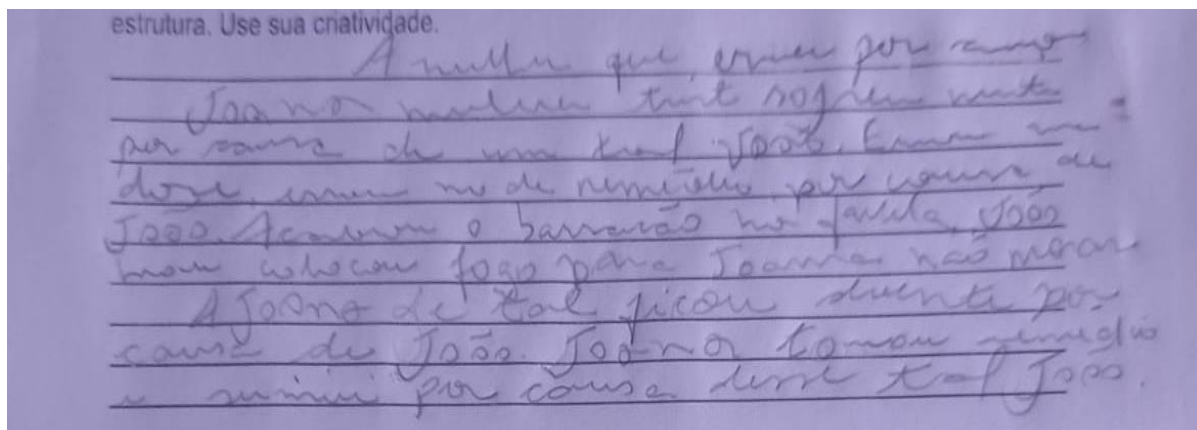 estrutura. Use sua criatividade.
A mulher que por amor
Joana mulher triste sofreu muito
por causa de um tal João.
dose, de remédio por causa de
João. Acabou o barracão na favela, João
colocou fogo para Joana não morar
A Joana de tal ficou doente por
causa de João. Joana tomou remédio
e sumiu por causa desse tal João.